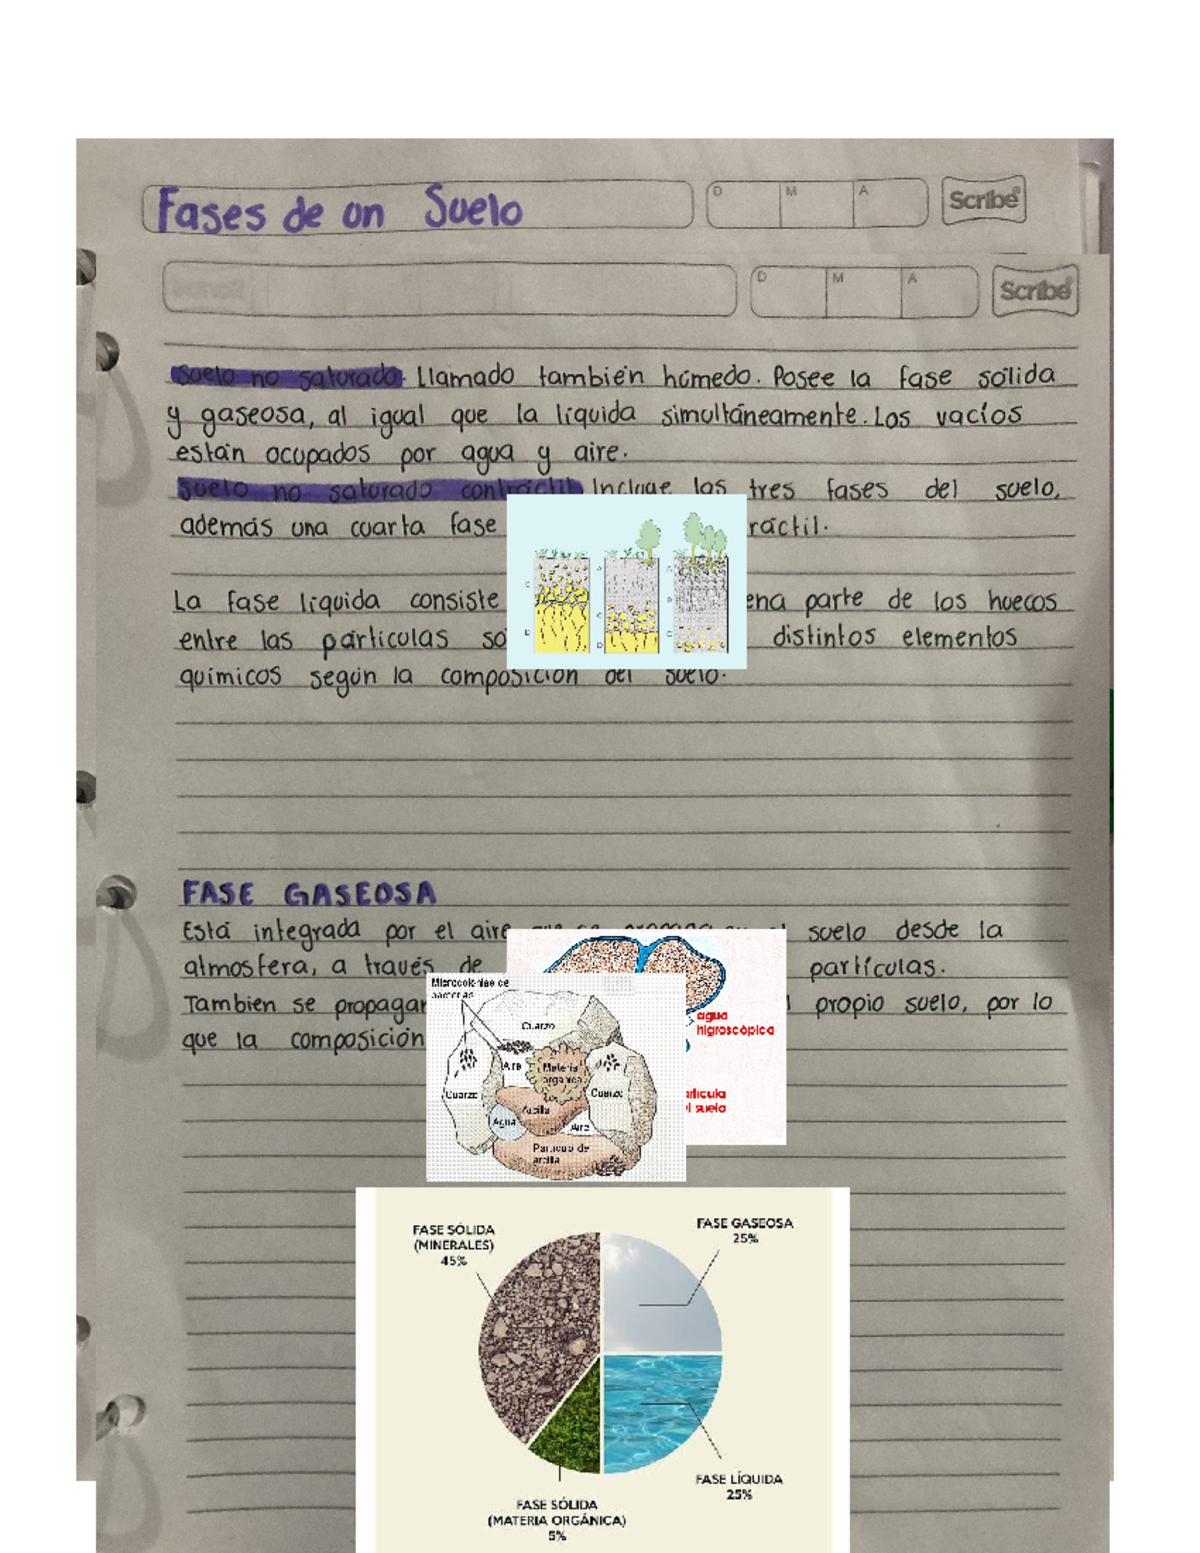 Fases de un Suelo
D M A
Scribe
D M A
Scribe
Suelo no saturado. Llamado también húmedo. Posee la fase sólida
y gaseosa, al igual que la líquida simultáneamente. Los vacíos
están ocupados por agua y aire.
Suelo no saturado contráctil Incluye las tres fases del suelo,
además una cuarta fase ráctil.
La fase líquida consiste ena parte de los huecos
entre las partículas só distintos elementos
químicos según la composición del suelo.
FASE GASEOSA
Está integrada por el aire que se propaga suelo desde la
atmosfera, a través de partículas.
Tambien se propagar propio suelo, por lo
que la composición
agua
higroscópica
artícula
l suelo
Microcolonias de
bacterias
Cuarzo
Aire
Materia
organica
Cuarzo
Cuarzo
Arcilla
Agua
Aire
Particula de
arcilla
FASE SÓLIDA
(MINERALES)
45%
FASE GASEOSA
25%
FASE LÍQUIDA
25%
FASE SÓLIDA
(MATERIA ORGÁNICA)
5%